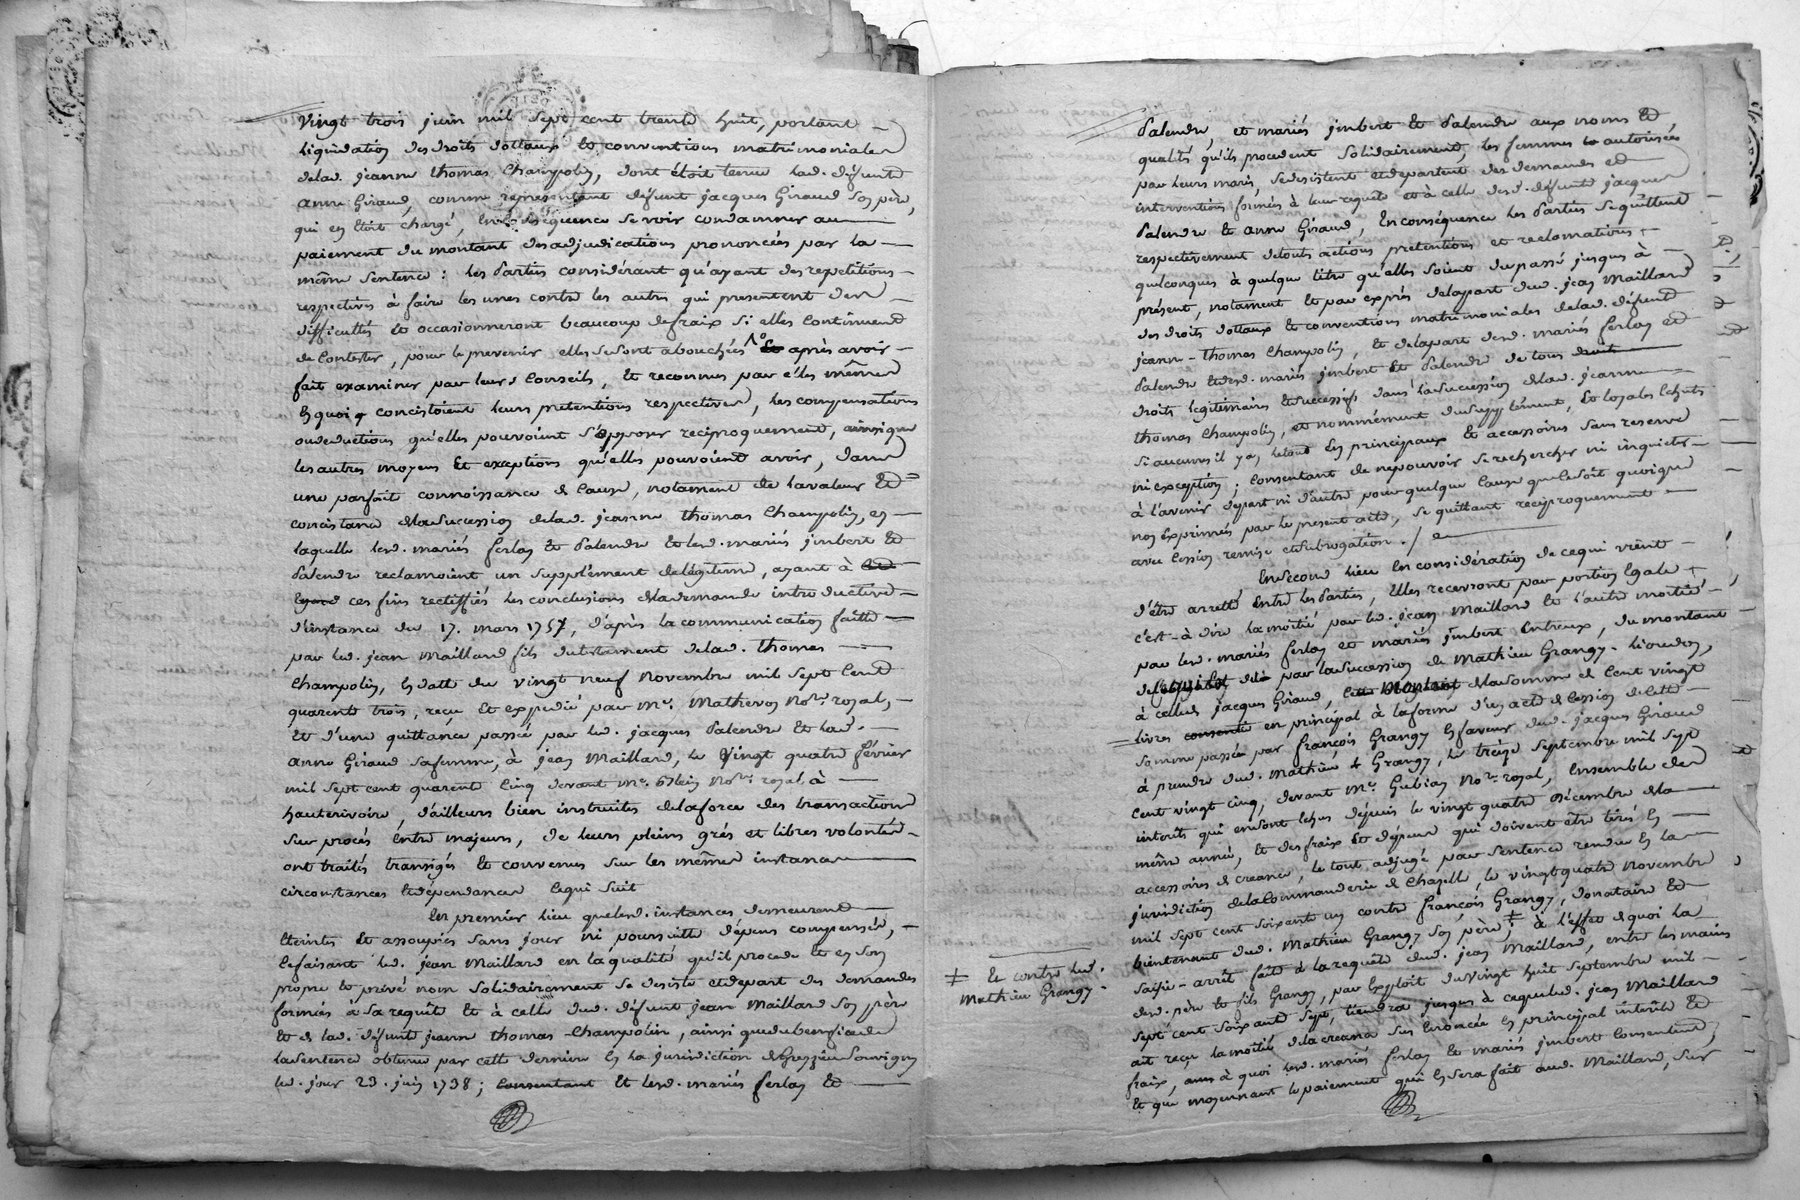 Vingt trois juin mil sept cent trente huit, portant
liquidation des droits dottaux et conventions matrimoniales
delad. jeanne thomas Champolin, dont étoit tenue lad. défunte
anne Giraud, comme representant défunt jacques Giraud son père,
qui en étoit chargé, en conséquence se voir condamner au
paiement du montant des adjudications prononcées par la
même sentence : les parties considérant qu'ayant des repetitions
respectives à faire les unes contre les autres qui presentent des
difficultés et occasionneront beaucoup de fraix si elles continuent
de contester, pour le prevenir elles se sont abouchées et après avoir
fait examiner par leurs Conseils, et reconnus par elles mêmes
en quoi concistoient leurs pretentions respectives, les compensations
ou deductions qu'elles pouvoient s'opposer reciproquement, ainsi que
les autres moyens et exceptions qu'elles pouvoient avoir, dans
une parfaite connoissance de cause, notament de la valeur et
concistance de la succession delad. jeanne thomas Champolin, en
laquelle lesd. mariés ferlay et Palendre et lesd. mariés jmbert et
Palendre reclamoient un supplément de légitime, ayant à
ces fins rectiffiés les conclusions de la demande introductive
d'instance du 17. mars 1757, d'après la communication faitte
par led. jean Maillard fils du testament delad. thomas
Champolin, en datte du vingt neuf novembre mil sept cent
quarente trois, reçu et expedié par Me. Mathevon Nore. royal,
et d'une quittance passée par led. jacques Palendre et lad.
anne Giraud sa femme, à jean Maillard, le vingt quatre février
mil sept cent quarent cinq devant Me. Nore. royal à
hauterivoire, d'ailleurs bien instruittes de la force des transactions
sur procés entre majeurs, de leurs pleins grés et libres volontés
ont traités transigés et convenus sur les mêmes instances
circonstances et dépendances ce qui suit
En premier lieu que lesd. instances demeurent
éteintes et assoupies sans jour ni poursuitte dépens compensés,
ce faisant led. jean Maillard en la qualité qu'il procede et en son
propre et privé nom solidairement se desiste et depart des demandes
formées a sa requête et à celle dud. défunt jean Maillard son père
et de lad. défunte jeanne thomas Champolin, ainsi que du benefice de
la sentence obtenue par cette derniere en la jurisdiction de Grezieu Souvigny
led. jour 23. juin 1738 ; consentant et lesd. mariés ferlay et
Palendre, et mariés jmbert et Palendre aux noms et
qualités qu'ils procedent solidairement, les femmes autorisées
par leurs maris, se desistent et departent des demandes et
interventions formées à leur requête et à celle desd. défunts jacques
Palendre et anne Giraud, en conséquence les parties se quittent
respectivement de touts actions pretentions et reclamations
quelconques à quelque titre qu'elles soient du passé jusques à
présent, notament et par exprès de la part dud. jean Maillard
des droits dottaux et conventions matrimoniales delad. défunte
jeanne thomas Champolin, et de la part desd. mariés ferlay et
Palendre et desd. mariés jmbert et Palendre de tous droits
droits legitimaires et successifs dans la succession de lad. jeanne
thomas Champolin, et nommément du supplément, et loyales échuts
si aucuns il y a, le tout en principaux et accessoires sans reserve
ni exception ; consentant de ne pouvoir se rechercher ni inquieter
à l'avenir de part ni d'autre pour quelque cause que ce soit quoique
non exprimés par le present acte, se quittant reciproquement
avec cession remise et subrogation ./.
En second lieu en considération de ce qui vient
d'être arretté entre les parties, elles recevront par portion egale
c'est-à dire la moitié par led. jean Maillard et l'autre moitié
par lesd. mariés ferlay et mariés jmbert entreux, du montant
par la succession de Mathieu Grangy
à cellede jacques Giraud, de la somme de cent vingt
livres en principal à la forme d'un acte de cession de cette
somme passée par françois Grangy en faveur dud. jacques Giraud
à prendre dud. Mathieu Grangy, le treize septembre mil sept
cent vingt cinq, devant Me. Gubian Nore. royal, ensemble des
interets qui en sont échus depuis le vingt quatre décembre de la
même année, et des fraix et dépens qui doivent être tirés en
accessoires de creance, le tout adjugé par sentence rendue en la
jurisdiction de la Commanderie de Chazelle, le vingt quatre novembre
mil sept cent soixante un contre françois Grangy, donataire et
bientenant dud. Mathieu Grangy son père ‡ à l'effet de quoi la
saisie-arrêt faite à la requête dud. jean Maillard, entre les mains
desd. père et fils Grangy, par exploit du vingt huit septembre mil
sept cent soixante sept, tiendra jusques à ce que led. jean Maillard
ait reçu la moitié de la creance sus enoncée en principal interêts et
fraix, aussi à quoi lesd. mariés ferlay et mariés jmbert consentent,
et que moyennant le paiement qui en sera fait aud. Maillard, sur
‡ Et contre led.
Mathieu Grangy.